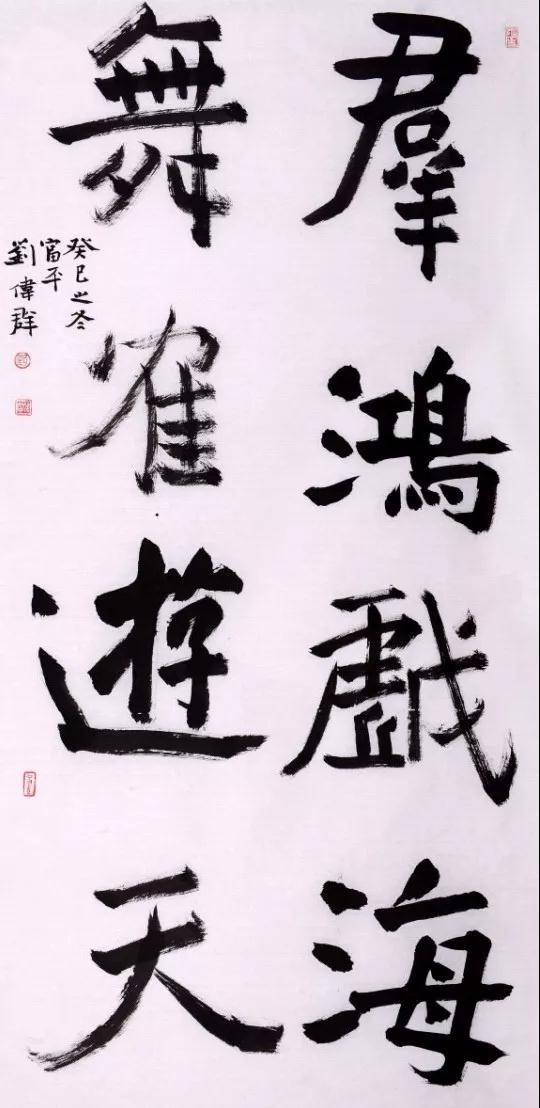 羣鴻戱海
舞隺遊天
癸巳之冬
富平
劉偉群